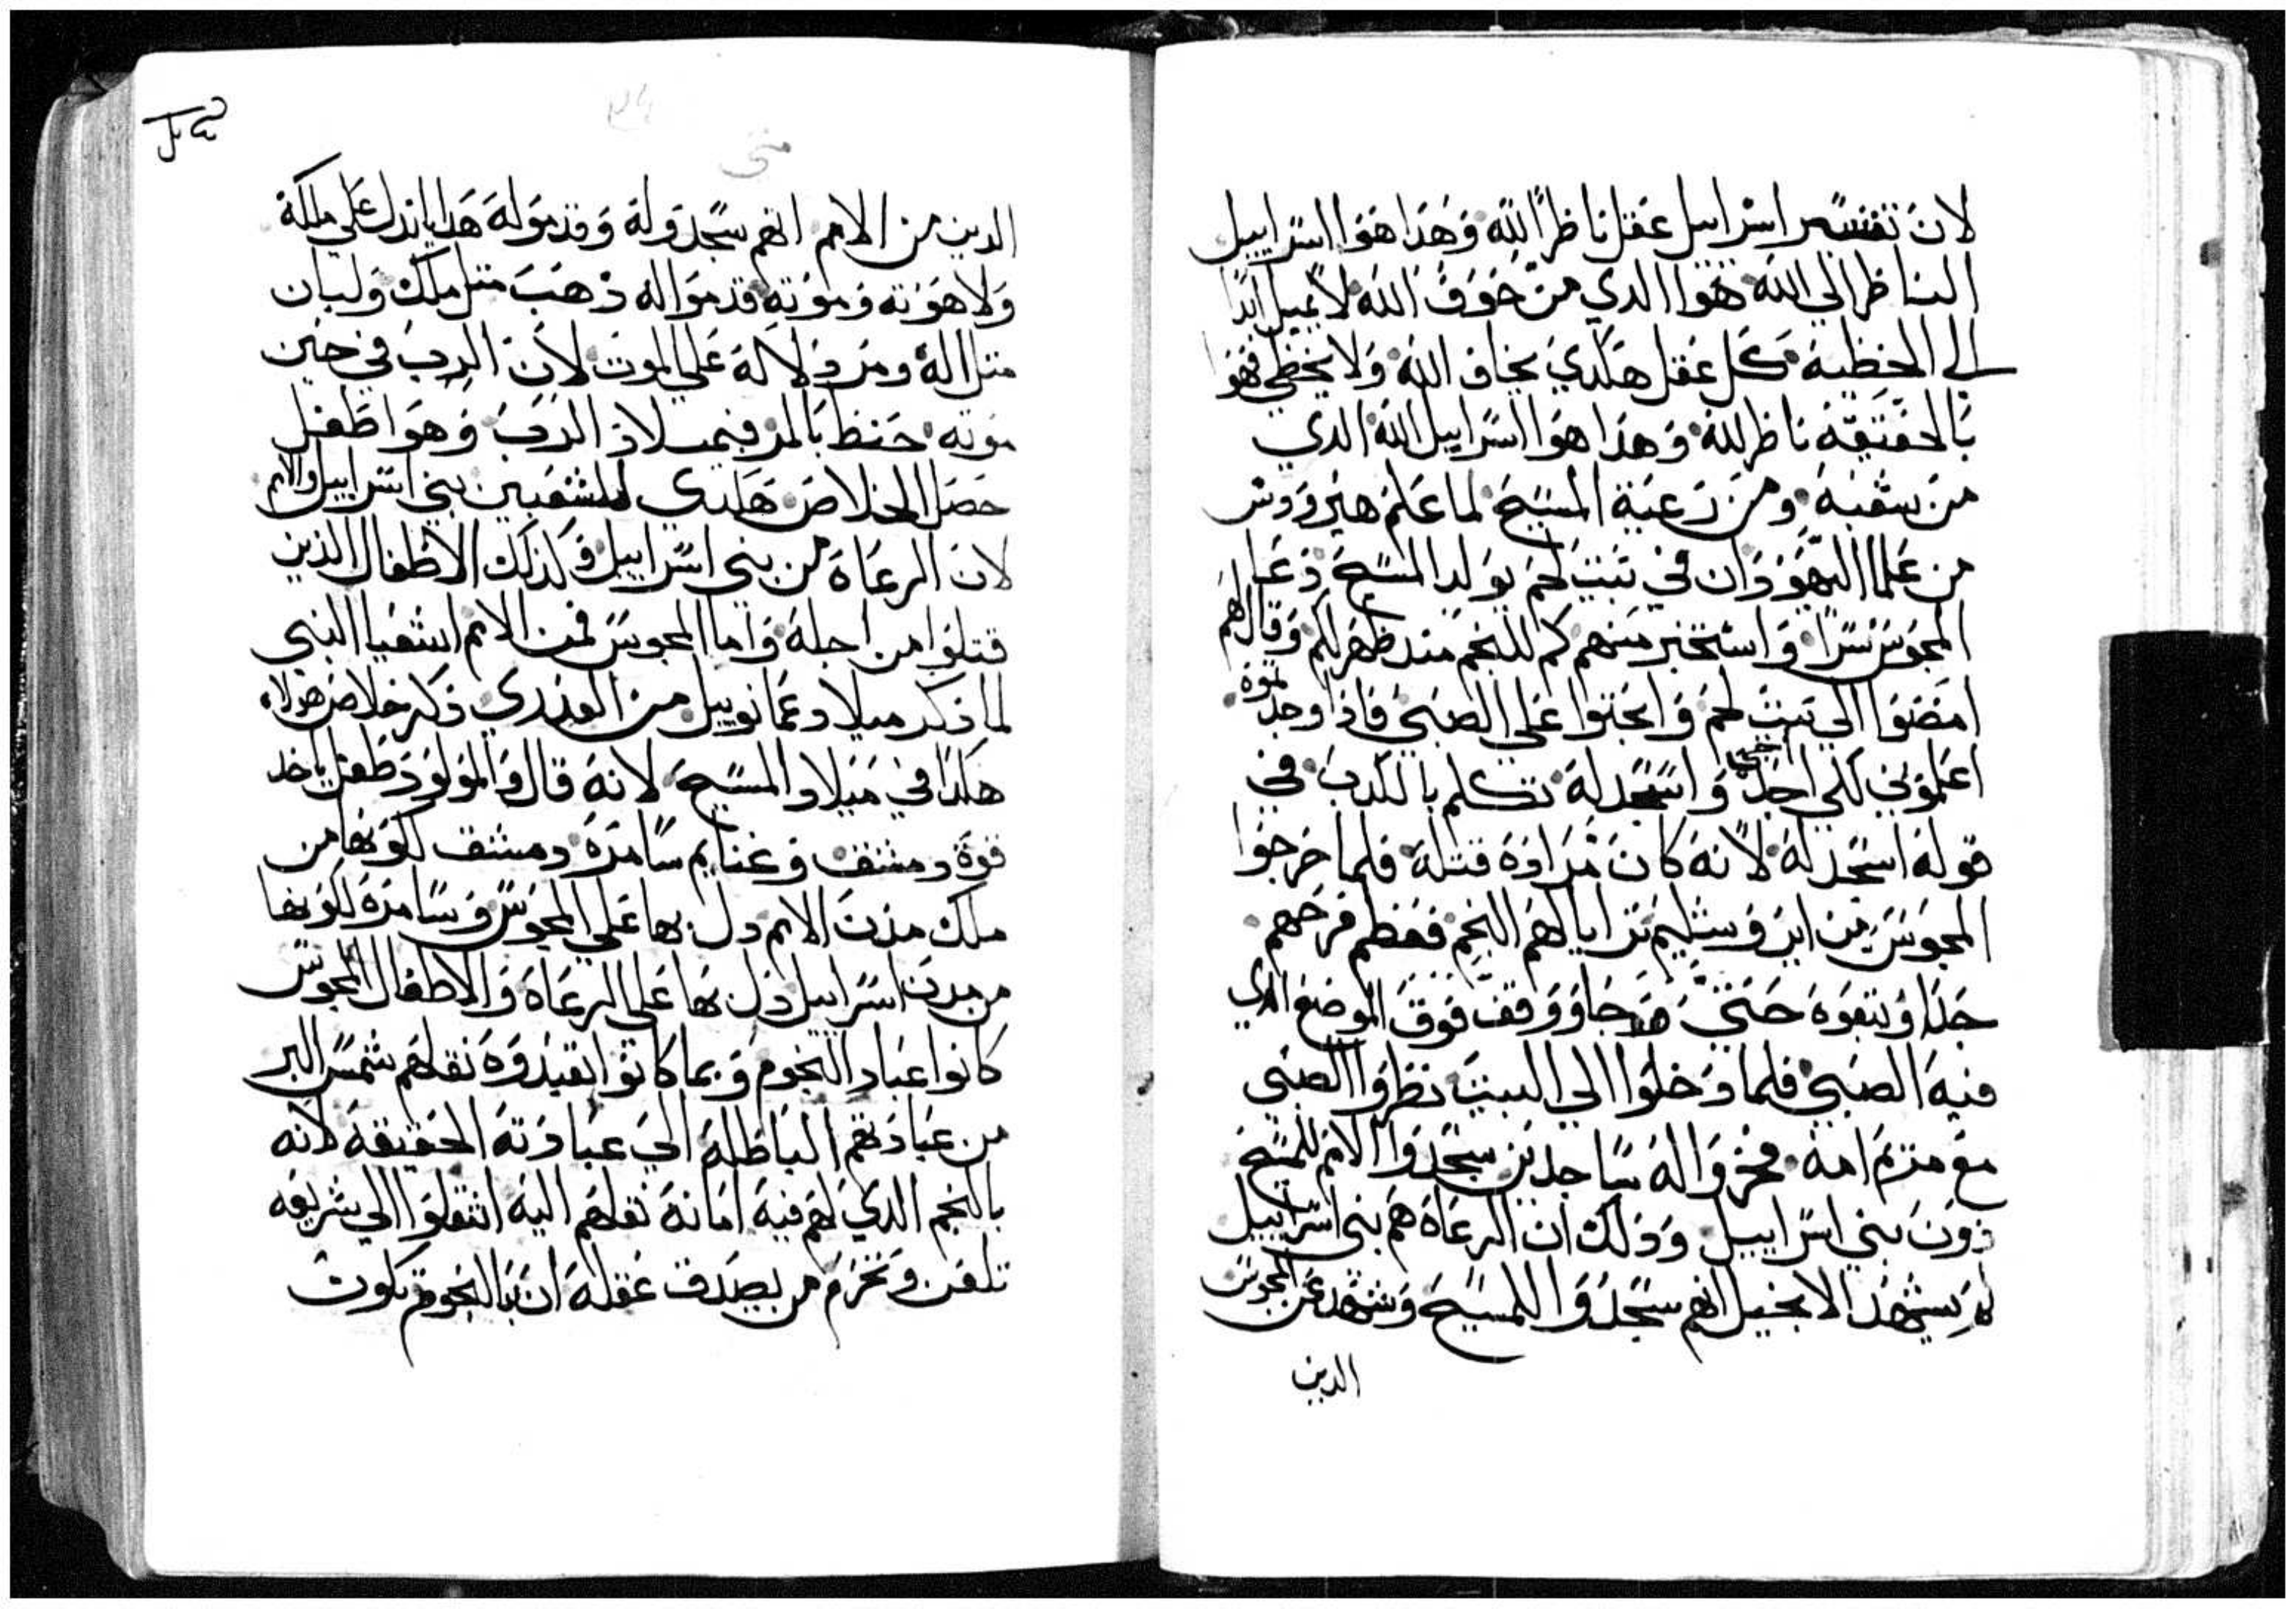 لان تفسير اسراييل عقل ناظراً لله وهذا هوا اسراييل
الناظر الي الله هوا الدي من خوف الله لا يميل ابدا
الي الخطية كل عقل هكدي يخاف الله ولا يخطي فهوا
بالحقيقه ناظر لله وهدا هوا اسراييل الله الدي
من شعبه ومن رعية المسيح لما علم هيرودس
من علما اليهود ان في بيت لحم يولد المسيح دعا
المجوس سراً واستخبر منهم كم للنجم مند ظهر لكم وقال لهم
امضوا الي بيت لحم وابحتوا علي الصبي فادا وجدتموه
اعلموني لكي اجي واسجد له تكلم بالكدب في
قوله اسجد له لانه كان مراده قتله فلما خرجوا
المجوس من ايروشليم ترايا لهم النجم فعظم فرحهم
جدا وتبعوه حتي جا ووقف فوق الموضع الدي
فيه الصبي فلما دخلوا الي البيت نظروا الصبي
مع مريم امه فخروا له ساجدين سجدوا الامم للمسيح
دون بني اسراييل ودلك ان الرعاة هم بني اسراييل
لم يشهد الانجيل انهم سجدوا للمسيح وشهد عن المجوس
الدين
متي
الدين من الامم انهم سجدوا له وقدموا له هدايا تدل علي ملكه
ولاهوته وموته قدموا له دهب متل ملك ولبان
متل اله ومر دلالة علي الموت لان الرب في حين
موته حنط بالمر فبميلاد الرب وهوا طفل
حصل الخلاص هكدي للشعبين بني اسراييل والامم
لان الرعاة من بني اسراييل وكدلك الاطفال الذين
قتلوا من اجله واما المجوس فمن الامم اشعيا النبي
لما ذكر ميلاد عمانوييل من العدري ذكر خلاص هولاء
هكدا في ميلاد المسيح لانه قال والمولود طفل ياخد
قوة دمشق وغنايم سامره دمشق لكونها من
ملك مدن الامم دل بها علي المجوس وسامره لكونها
من مدن اسراييل دل بها علي الرعاة والاطفال المجوس
كانوا عباد النجوم وبما كانوا يعبدوه نقلهم شمس البر
من عبادتهم الباطلة الي عبادته الحقيقة لانه
بالنجم الدي لهم فيه امانة نقلهم اليه انتقلوا الي شريعه
تلعن وتحرم من يصدق عقله ان بالنجوم تكون